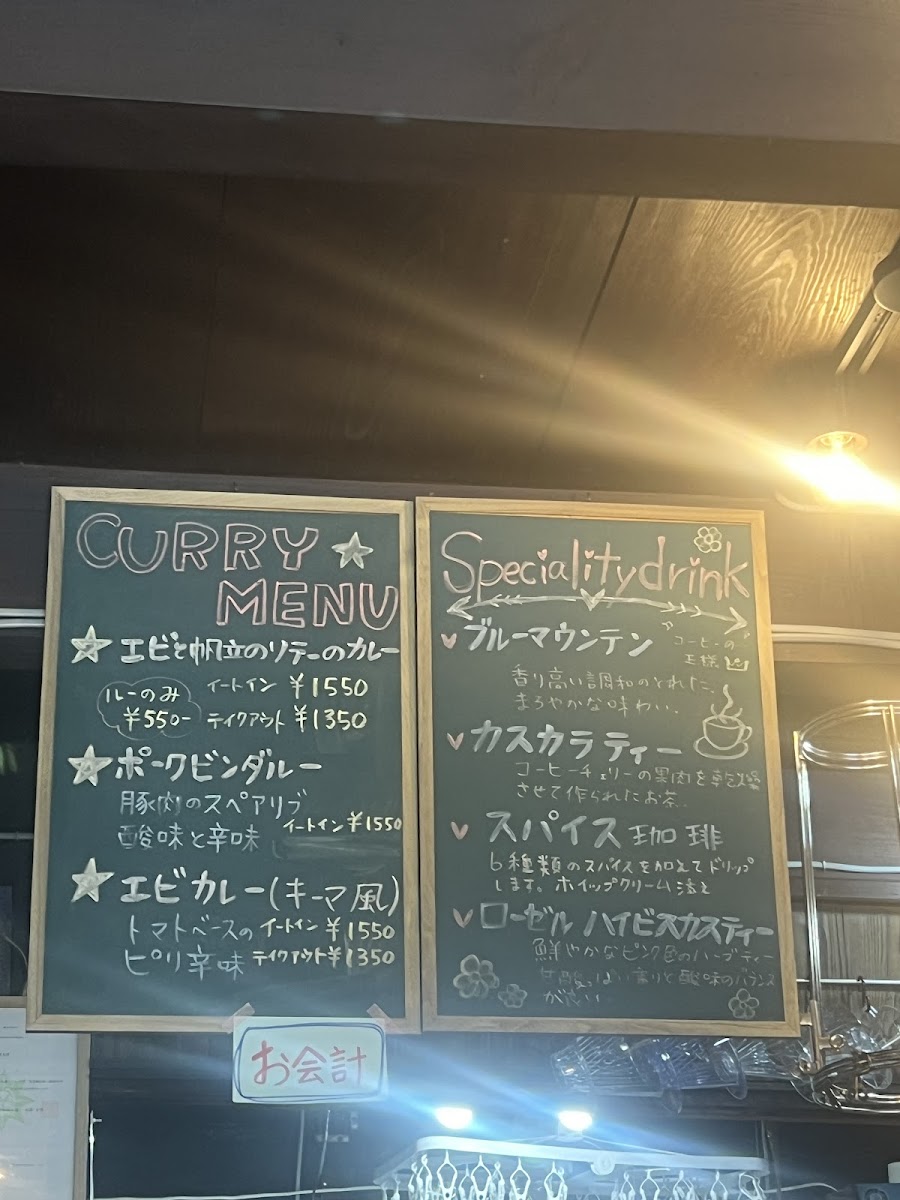 CURRY
MENU
エビと帆立のソテーのカレー
ルーのみ
¥550-
イートイン ¥1550
テイクアウト ¥1350
ポークビンダルー
豚肉のスペアリブ
酸味と辛味
イートイン ¥1550
エビカレー(キーマ風)
トマトベースの
ピリ辛味
イートイン ¥1550
テイクアウト ¥1350
お会計
Specialitydrink
ブルーマウンテン
"コーヒーの
王様
香り高い調和のとれた、
まろやかな味わい。
カスカラティー
コーヒーチェリーの果肉を乾燥
させて作られたお茶。
スパイス珈琲
6種類のスパイスを加えてドリップ
します。ホイップクリーム添え
ローゼルハイビスカスティー
鮮やかなピンク色のハーブティー
甘酸っぱい香りと酸味のバランス
がよい